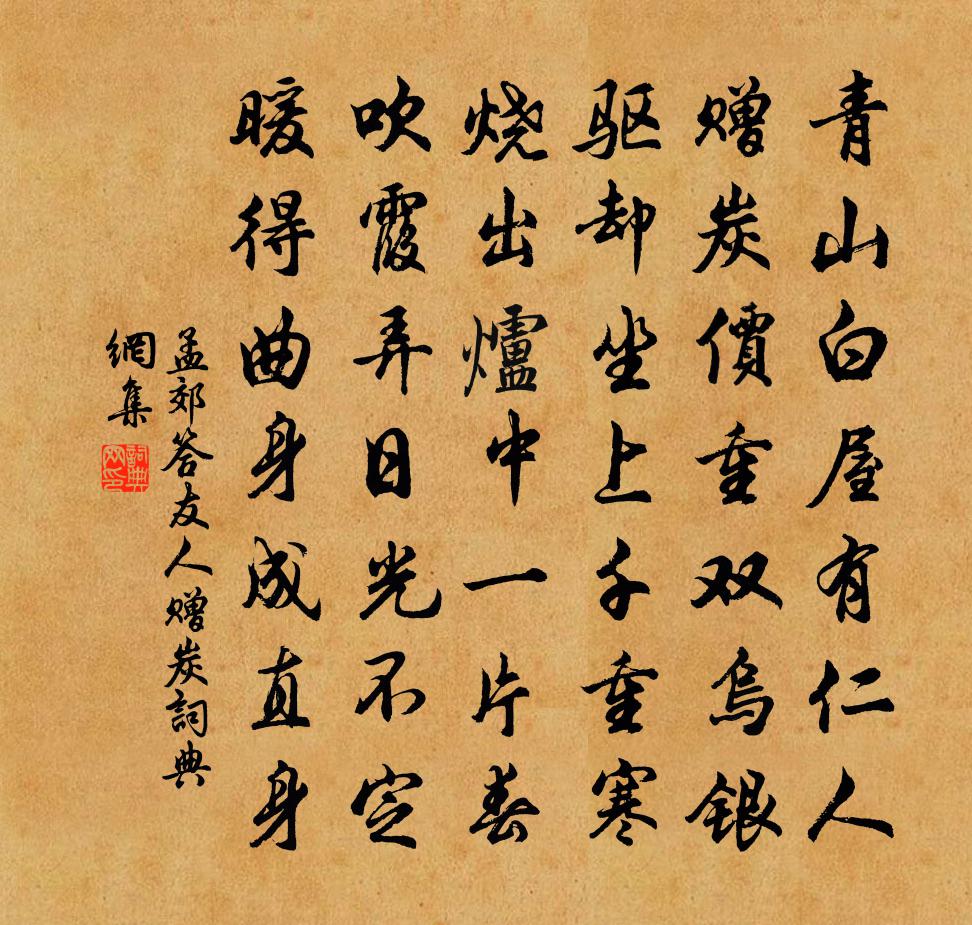 青山白屋有仁人
赠炭價重双烏銀
驱却坐上千重寒
烧出爐中一片春
吹霞弄日光不定
暖得曲身成直身
孟郊答友人赠炭詞典
網集
詞典
网印